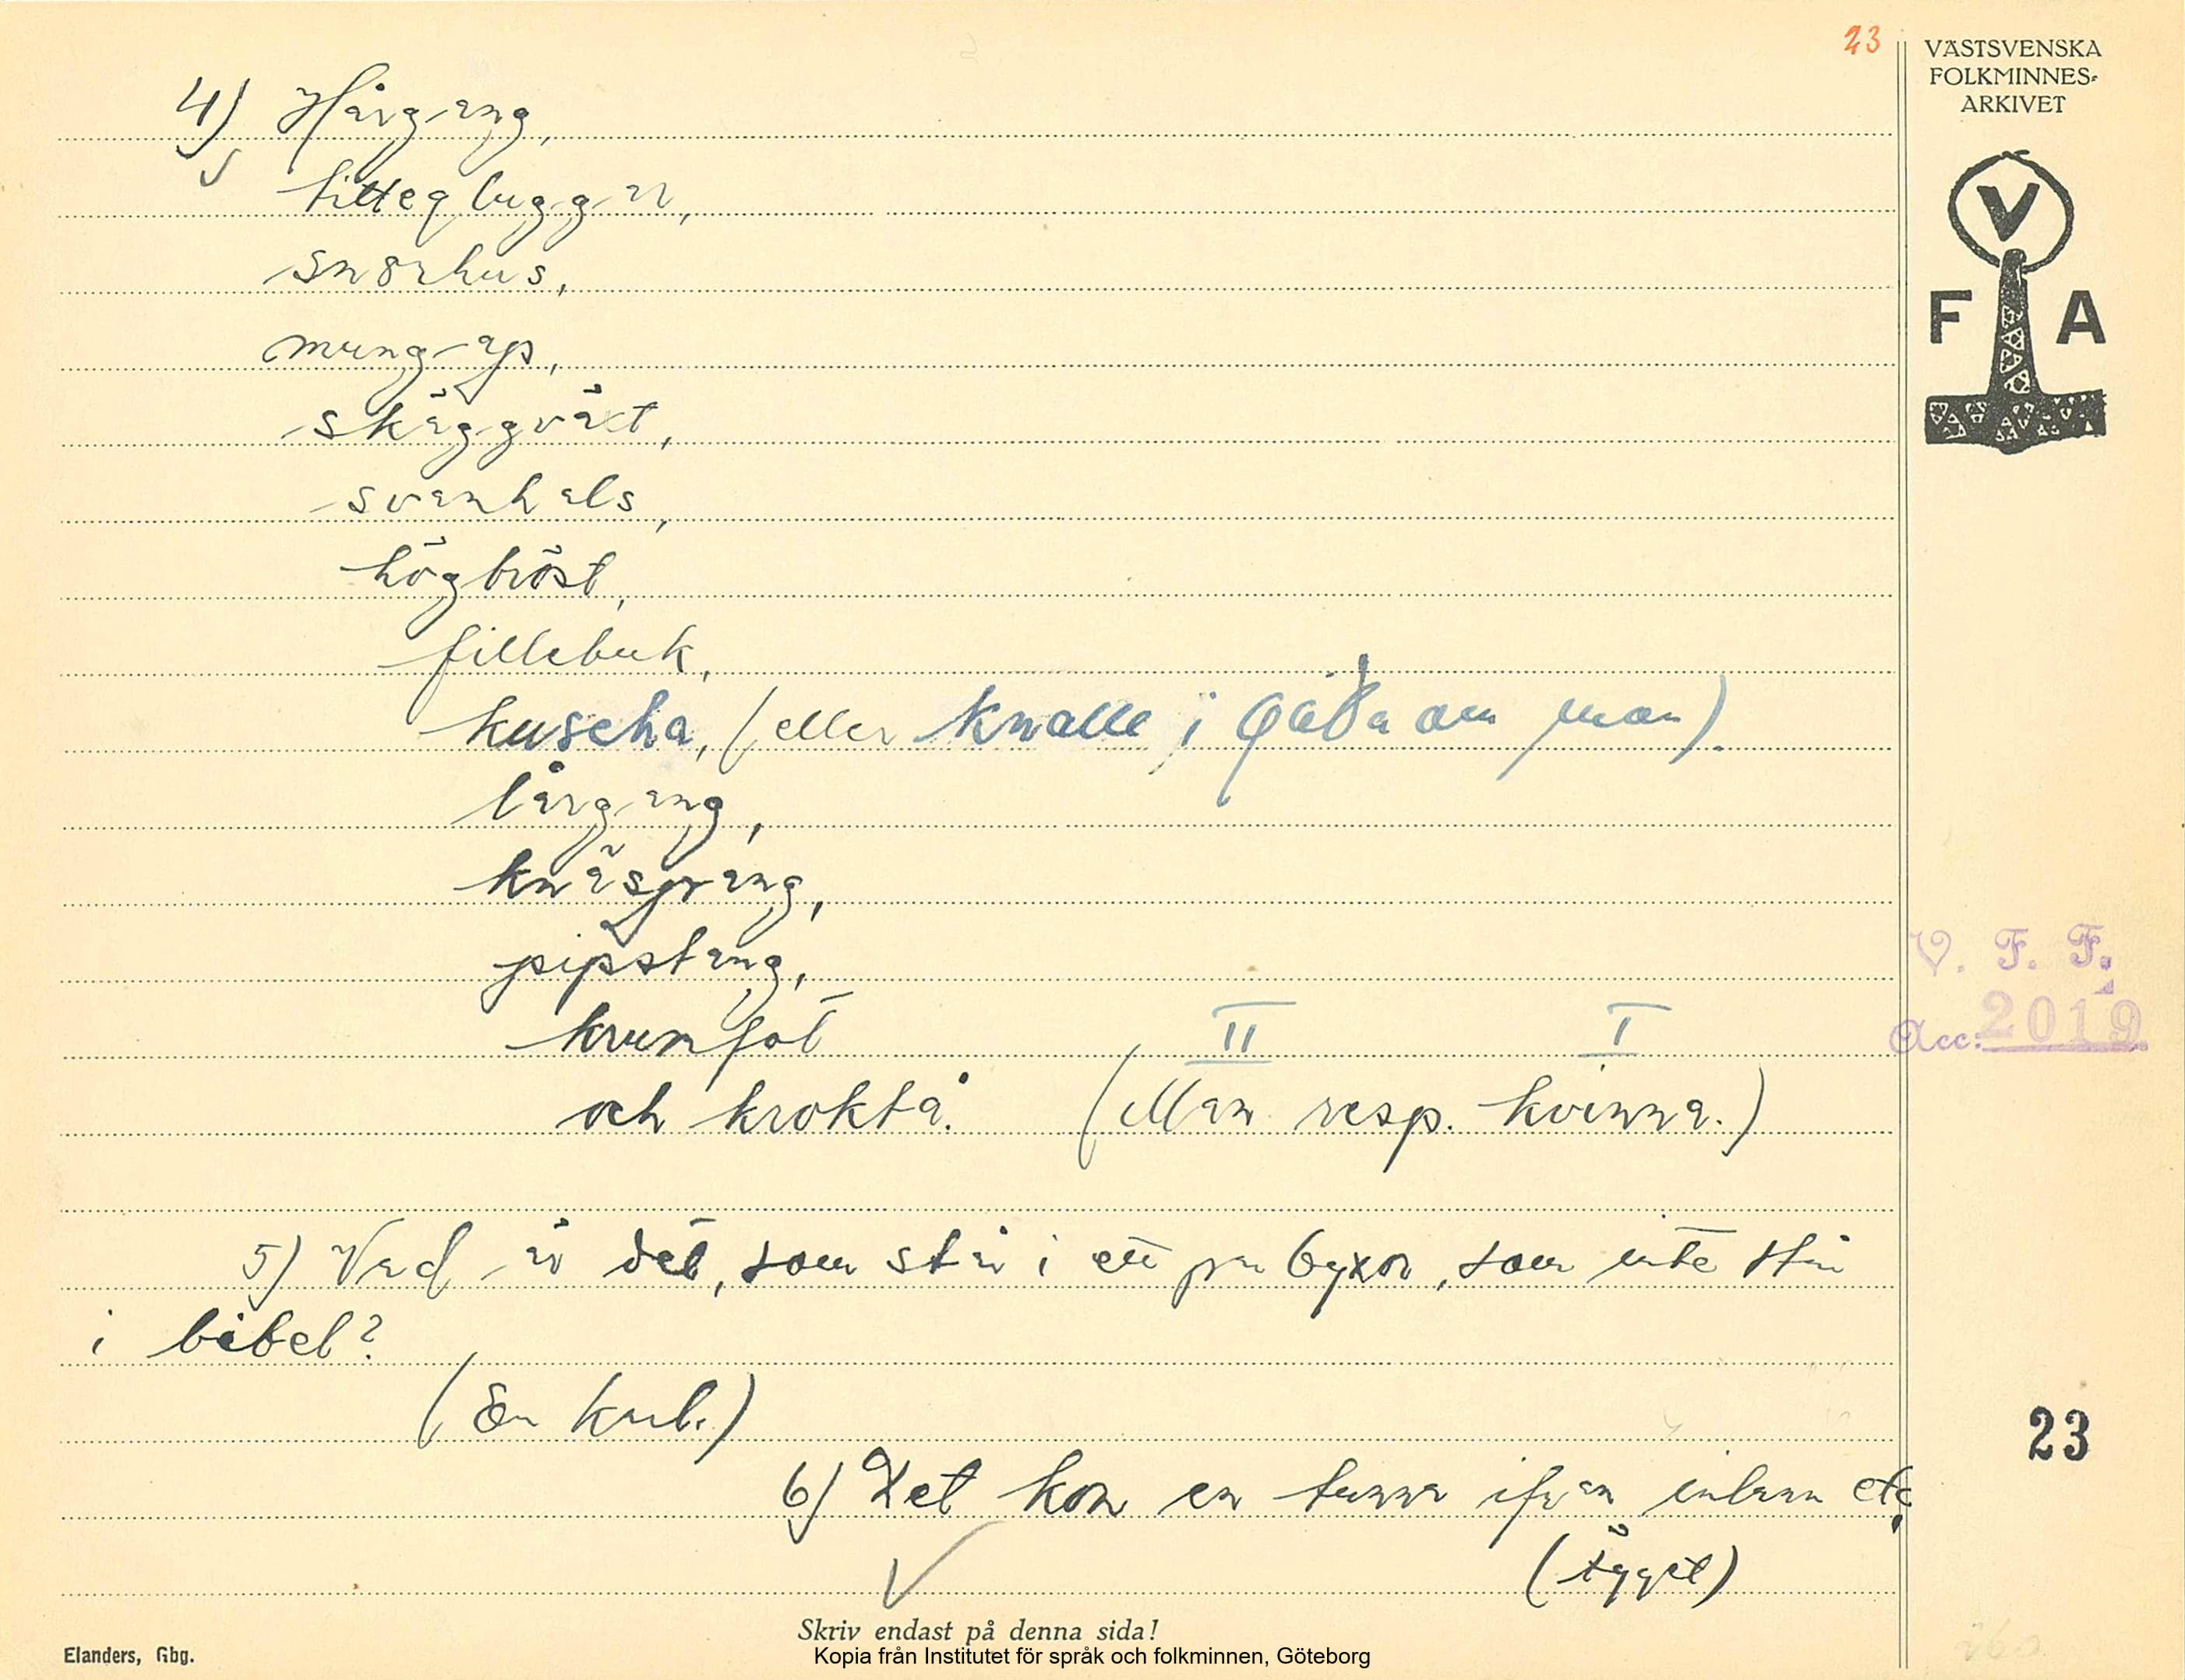 23
VÄSTSVENSKA
FOLKMINNES-
ARKIVET
V
F A
4) Hårgang,
tittegluggar,
snorhus,
mungap,
skäggväxt,
svanhals,
högbröst,
fillebuk,
kuseha, (eller knalle i om man).
lårgang,
knäsprang,
pipstang,
krumfot
II I
och kroktå. (Man resp. kvinna.)
5) Vad är det, som står i ett par byxor, som inte står
i bibel?
(En karl.)
6) Det kom en tunna ifran inlann etc.
(ägget)
V. F. F.
Acc: 2019
23
Skriv endast på denna sida!
Elanders, Gbg.
Kopia från Institutet för språk och folkminnen, Göteborg